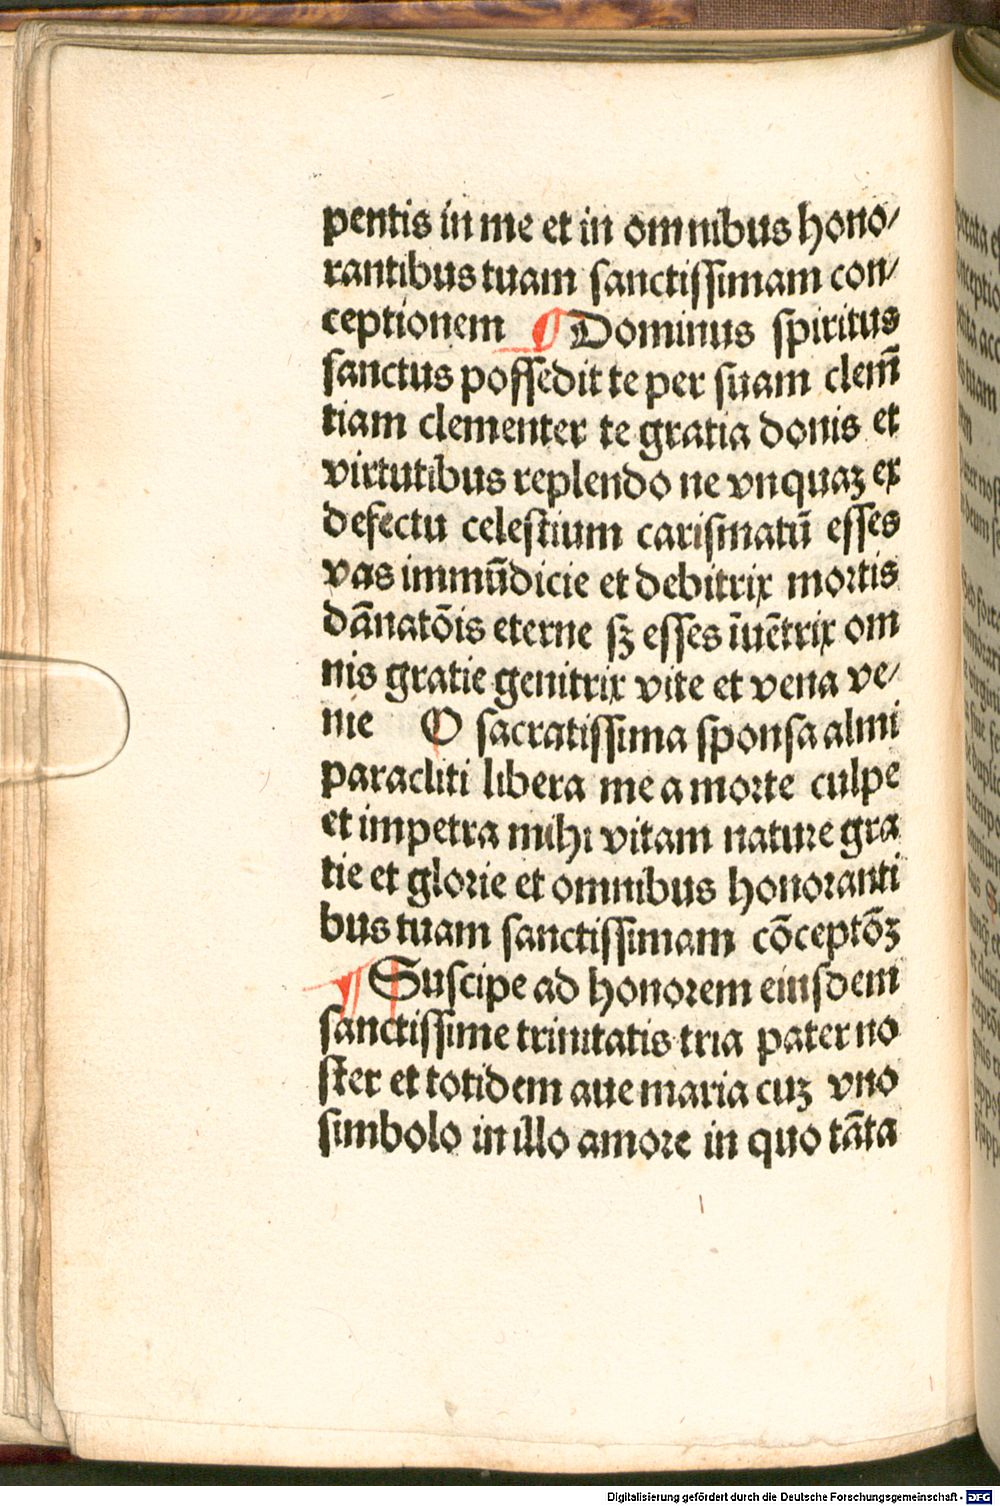 pentis in me et in omnibus hono/
rantibus tuam sanctissimam con/
ceptionem ¶ Dominus spiritus
sanctus possedit te per suam clem̃
tiam clementer te gratia donis et
virtutibus replendo ne vnquaꝫ ex
defectu celestium carismatū esses
vas immūdicie et debitrix mortis
dānatōis eterne sꝫ esses īuētrix om
nis gratie genitrix vite et vena ve/
nie O sacratissima sponsa almi
paracliti libera me a morte culpe
et impetra mihi vitam nature gra
tie et glorie et omnibus honoranti
bus tuam sanctissimam cōceptōꝫ
¶ Suscipe ad honorem eiusdem
sanctissime trinitatis tria pater no
ster et totidem aue maria cuꝫ vno
simbolo in illo amore in quo tāta
Digitalisierung gefördert durch die Deutsche Forschungsgemeinschaft - DFG